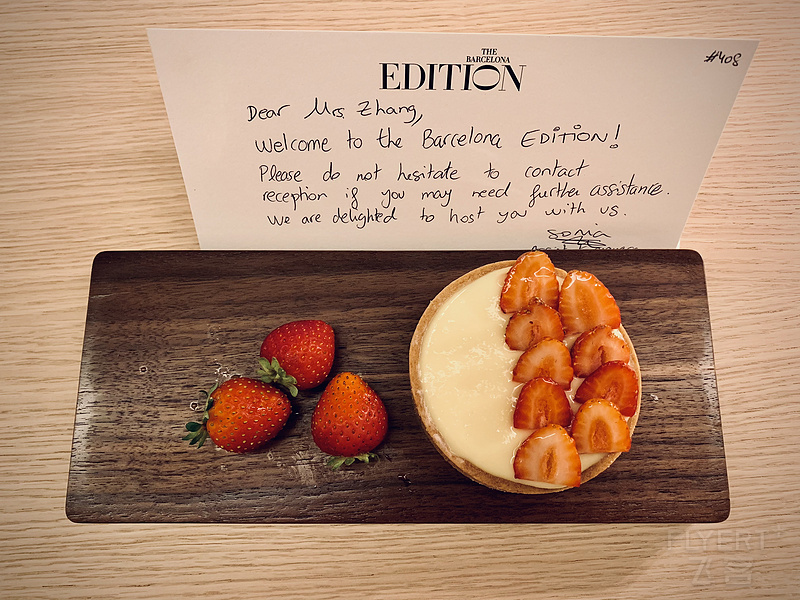 THE
BARCELONA
EDITION
#408
Dear Mrs. Zhang,
Welcome to the Barcelona EDITION!
Please do not hesitate to contact
reception if you may need further assistance.
We are delighted to host you with us.
SOMA
FLYERT